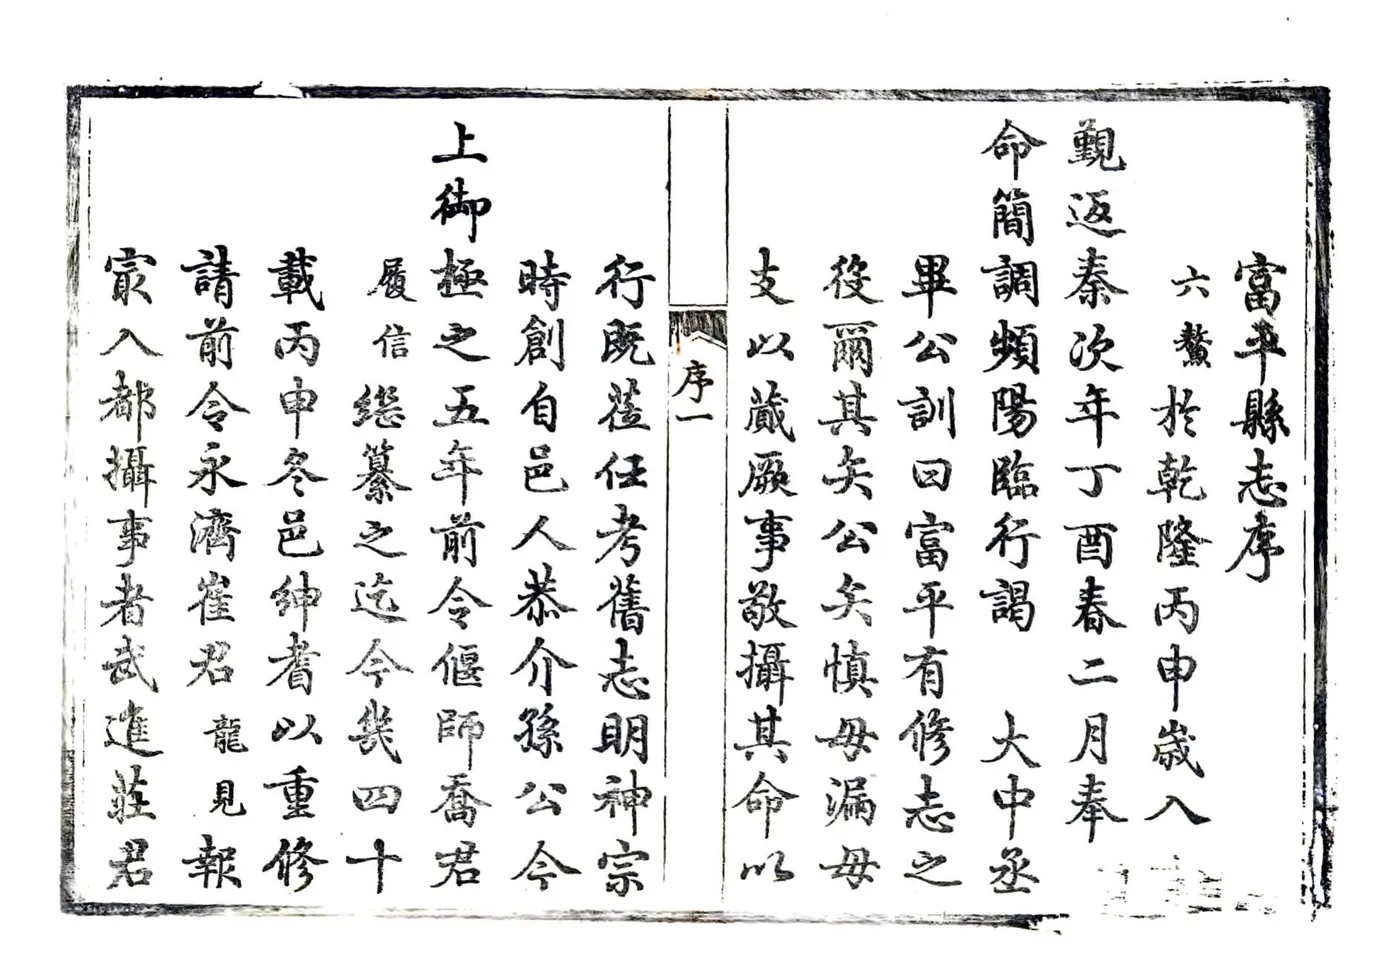 富平縣志序
六鰲於乾隆丙申歲入
覲返秦次年丁酉春二月奉
命簡調頻陽臨行謁 大中丞
畢公訓曰富平有修志之
役爾其矢公矢慎毋漏毋
支以蕆厥事敬攝其命以
序一
行既莅任考舊志明神宗
時創自邑人恭介孫公今
上御極之五年前令偃師喬君
履信繼纂之迄今幾四十
載丙申冬邑紳耆以重修
請前令永濟崔君龍見報
㝡入都攝事者武進莊君